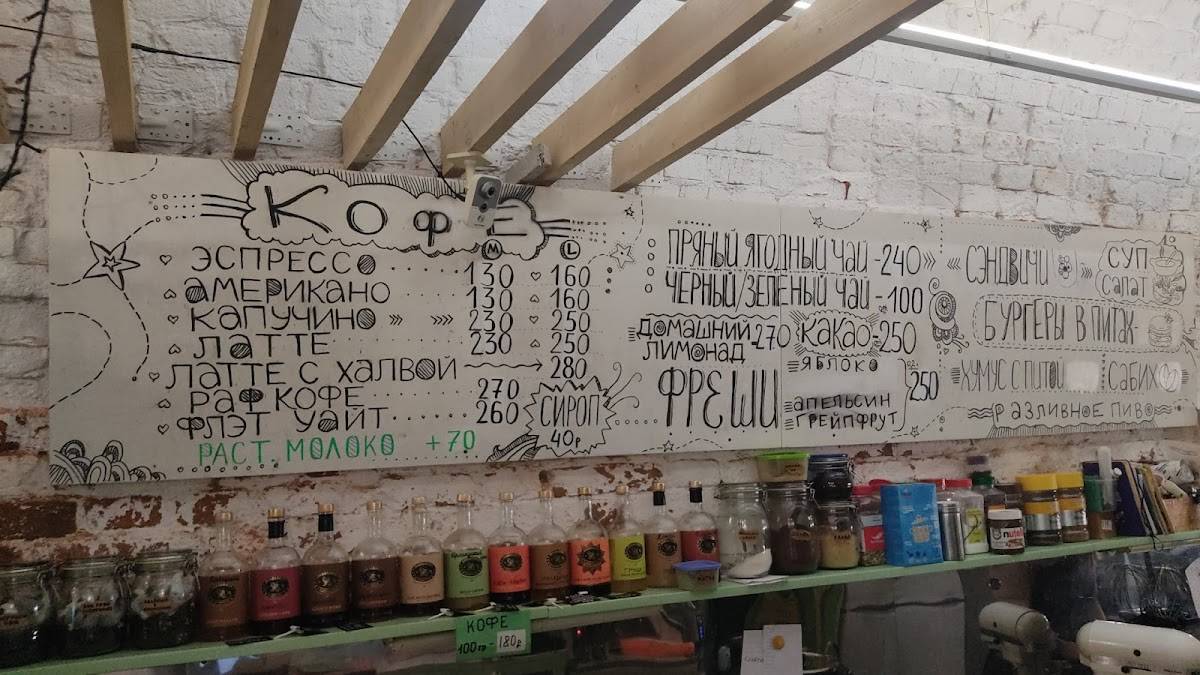 КОФЕ
M L
ЭСПРЕССО 130 160
АМЕРИКАНО 130 160
КАПУЧИНО 230 250
ЛАТТЕ 230 250
ЛАТТЕ С ХАЛВОЙ 280
РАФ КОФЕ 270
ФЛЭТ УАЙТ 260
РАСТ. МОЛОКО +70
СИРОП
40р
ПРЯНЫЙ ЯГОДНЫЙ ЧАЙ -240
ЧЕРНЫЙ/ЗЕЛЕНЫЙ ЧАЙ -100
ДОМАШНИЙ ЛИМОНАД -270
КАКАО -250
ФРЕШИ
ЯБЛОКО
АПЕЛЬСИН
ГРЕЙПФРУТ
250
СЭНДВИЧИ
СУП
САЛАТ
БУРГЕРЫ В ПИТАХ
ХУМУС С ПИТОЙ
САБИХ
РАЗЛИВНОЕ ПИВО
nutella
КОФЕ
100 гр - 180р